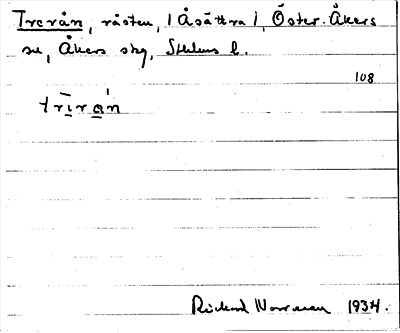 Trerån, rästen, / Åsättra /, Öster-Åkers
sn, Åkers skg, Sthlms l.
108
trīrȧn
Rickard Norrman 1934.